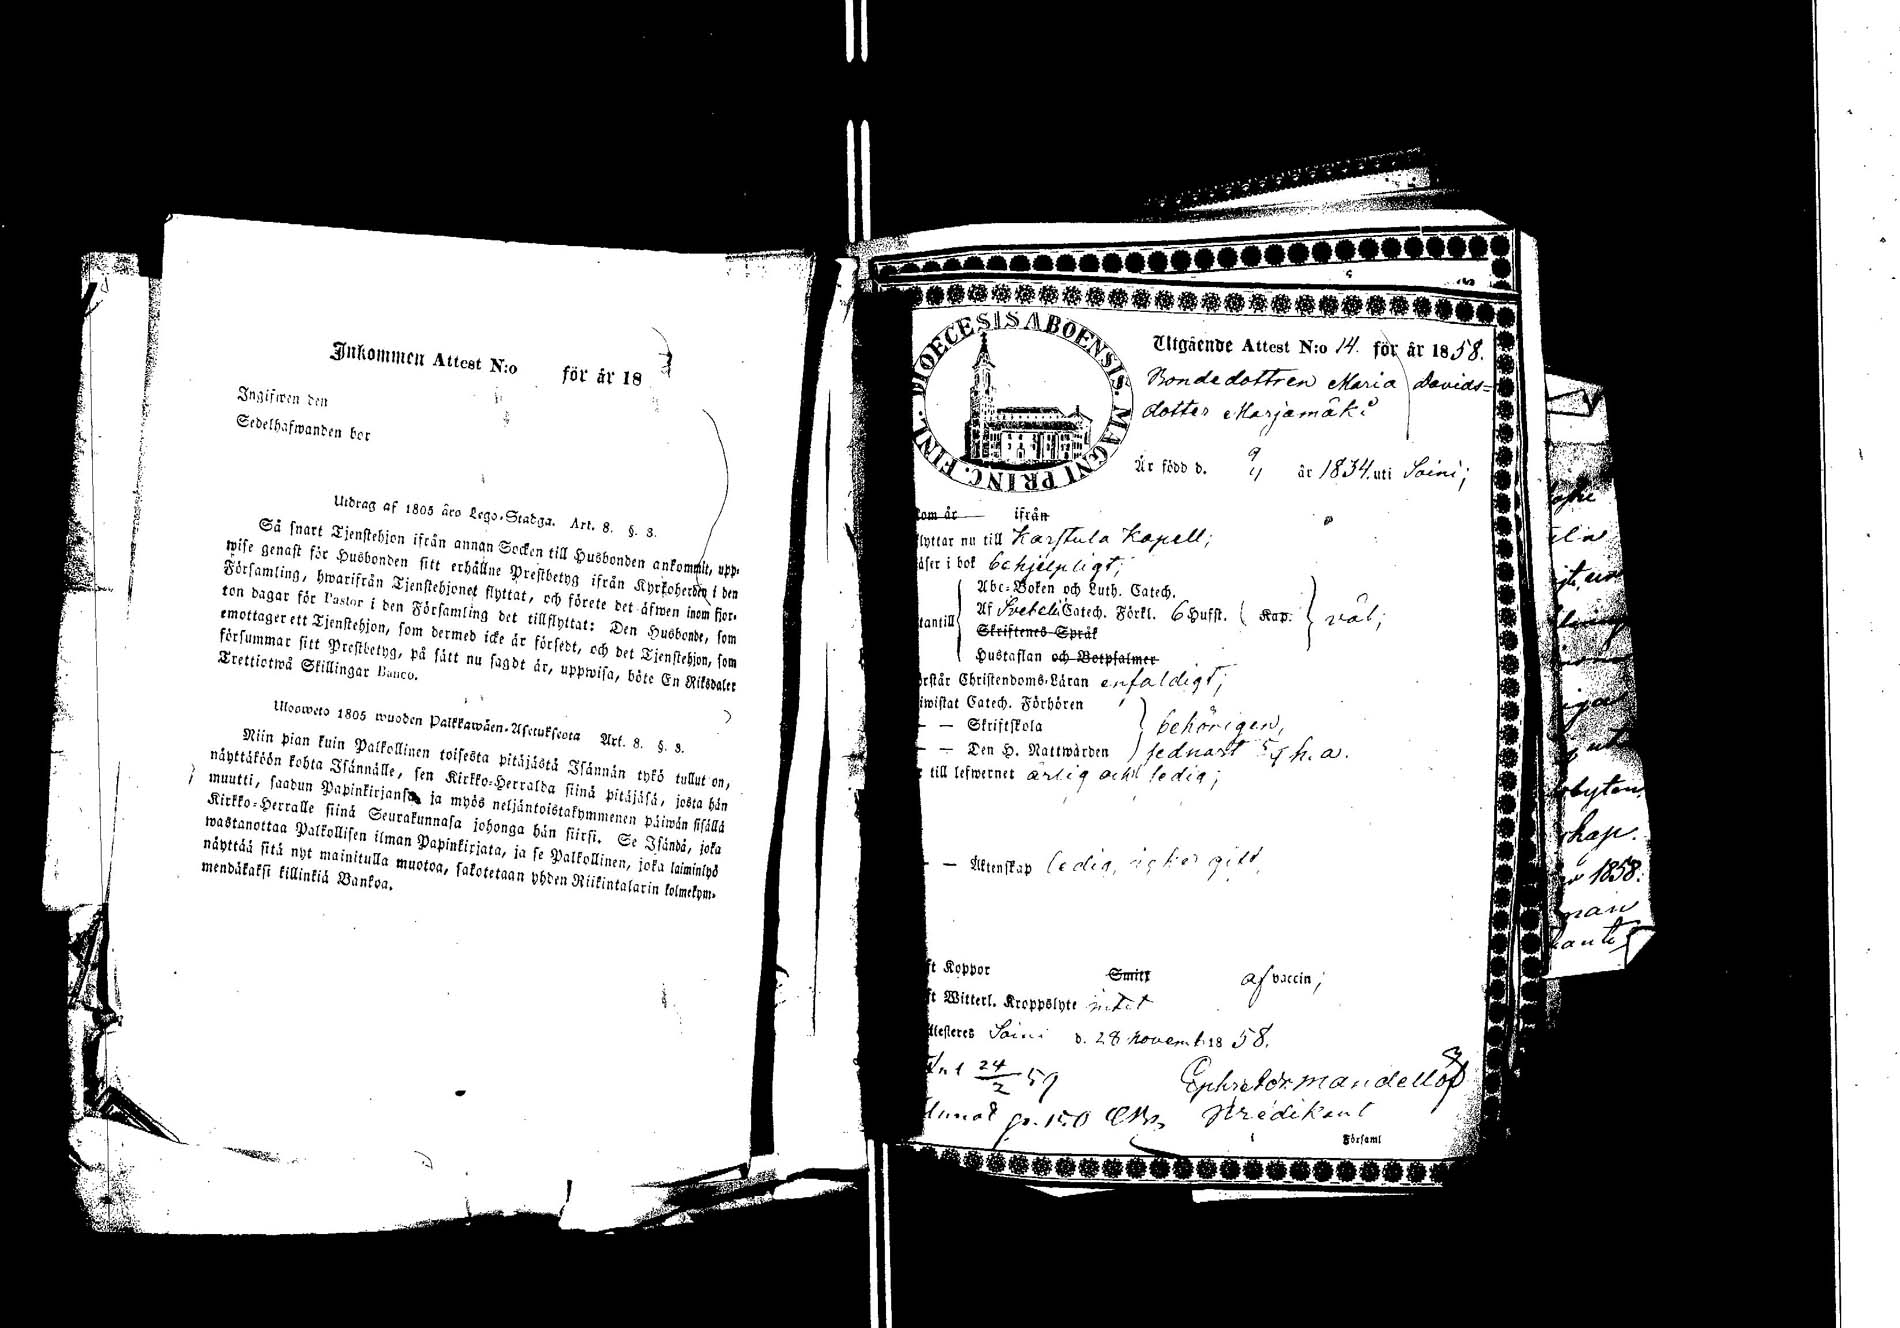 Inkommen Attest N:o för år 18
Ingifwen den
Sedelhafwanden bor
Utdrag af 1805 års Lego-Stadga. Art. 8. §. 3.
Så snart Tjenstehjon ifrån annan Socken till Husbonden ankommit, upp-
wise genast för Husbonden sitt erhållne Prestbetyg ifrån Kyrkoherden i den
Församling, hwarifrån Tjenstehjonet flyttat, och förete det äfwen inom fjor-
ton dagar för Pastor i den Församling det tillflyttat: Den Husbonde, som
emottager ett Tjenstehjon, som dermed icke är försedt, och det Tjenstehjon, som
försummar sitt Prestbetyg, på sätt nu sagdt är, uppwisa, böte En Riksdaler
Trettiotwå Skillingar Banco.
Ulosweto 1805 wuoden Palkkawäen-Asetuksesta Art. 8. §. 3.
Niin pian kuin Palkollinen toisesta pitäjästä Isännän tykö tullut on,
näyttäköön kohta Isännälle, sen Kirkko-Herralda siinä pitäjäsä, josta hän
muutti, saadun Papinkirjansa, ja myös neljäntoistakymmenen päiwän sisällä
Kirkko-Herralle siinä Seurakunnasa johonga hän siirsi. Se Isändä, joka
wastanottaa Palkollisen ilman Papinkirjata, ja se Palkollinen, joka laiminlyö
näyttää sitä nyt mainitulla muotoa, sakotetaan yhden Riikintalarin kolmekym-
mendäkaksi killinkiä Bankoa.
DIOECESIS ABOENSIS. MAGNI PRINC. FINL.
Utgående Attest N:o 14. för år 1858.
Bondedottren Maria Davids-
dotter Marjamäki
Är född d. 9/11 år 1834 uti Soini;
kom år ifrån
flyttar nu till Karstula Kapell;
läser i bok behjelpligt;
Abc-Boken och Luth. Catech.
utantill Af Svebelii Catech. Förkl. 6 Hufst. Kap. väl;
Skriftenes Språk
Hustaflan och Botpsalmer
förstår Christendoms-Läran enfaldigt;
biwistat Catech. Förhören
— — Skriftskola behörigen,
— — Den H. Nattwarden sednast h. a.
är till lefwernet ärlig och ledig;
— — Äktenskap ledig,
haft Koppor Smitt af vaccin;
haft Witterl. Kroppslyte intet
Attesteres Soini d. 28 novemb. 1858.
24/2 59
Mandellöf
Predikant
i Församl
1858.